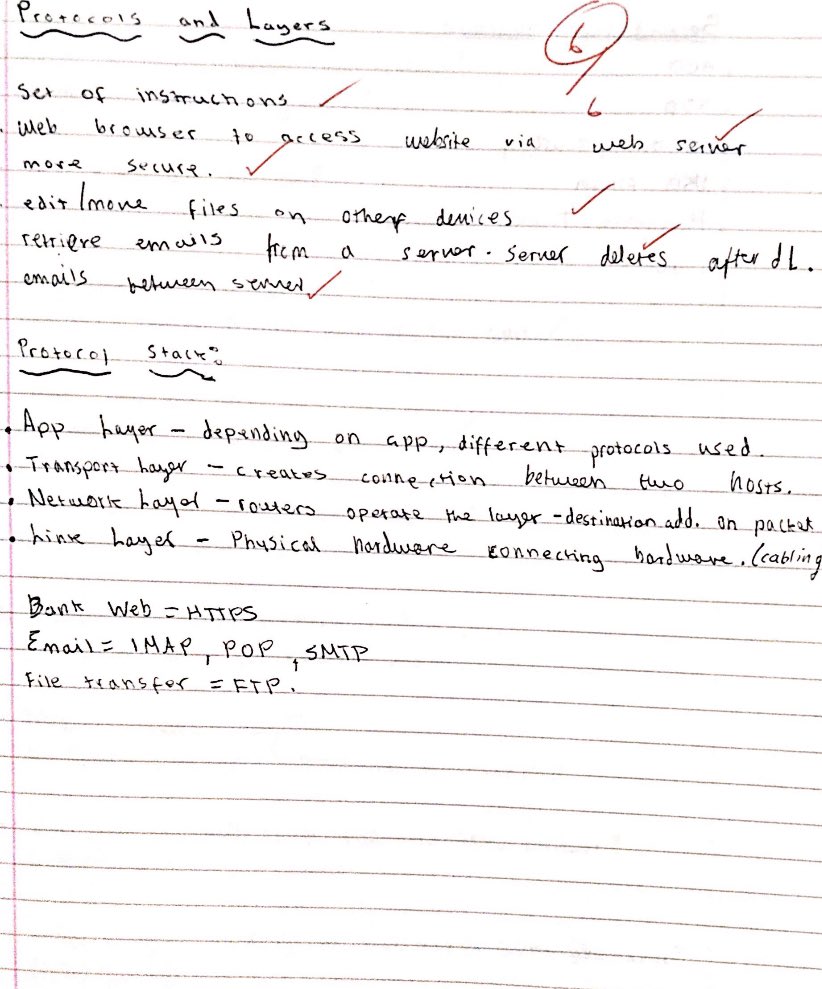 Protocols and Layers
6
6
Set of instructions
Web browser to access website via web server
more secure.
edit/move files on other devices
retrieve emails from a server. Server deletes after dL.
emails between server
Protocol Stack:
• App Layer – depending on app, different protocols used.
• Transport Layer – creates connection between two hosts.
• Network Layer – routers operate the layer – destination add. on packet
• Link Layer – Physical hardware connecting hardware. (cabling
Bank Web = HTTPS
Email = IMAP, POP, SMTP
File transfer = FTP.